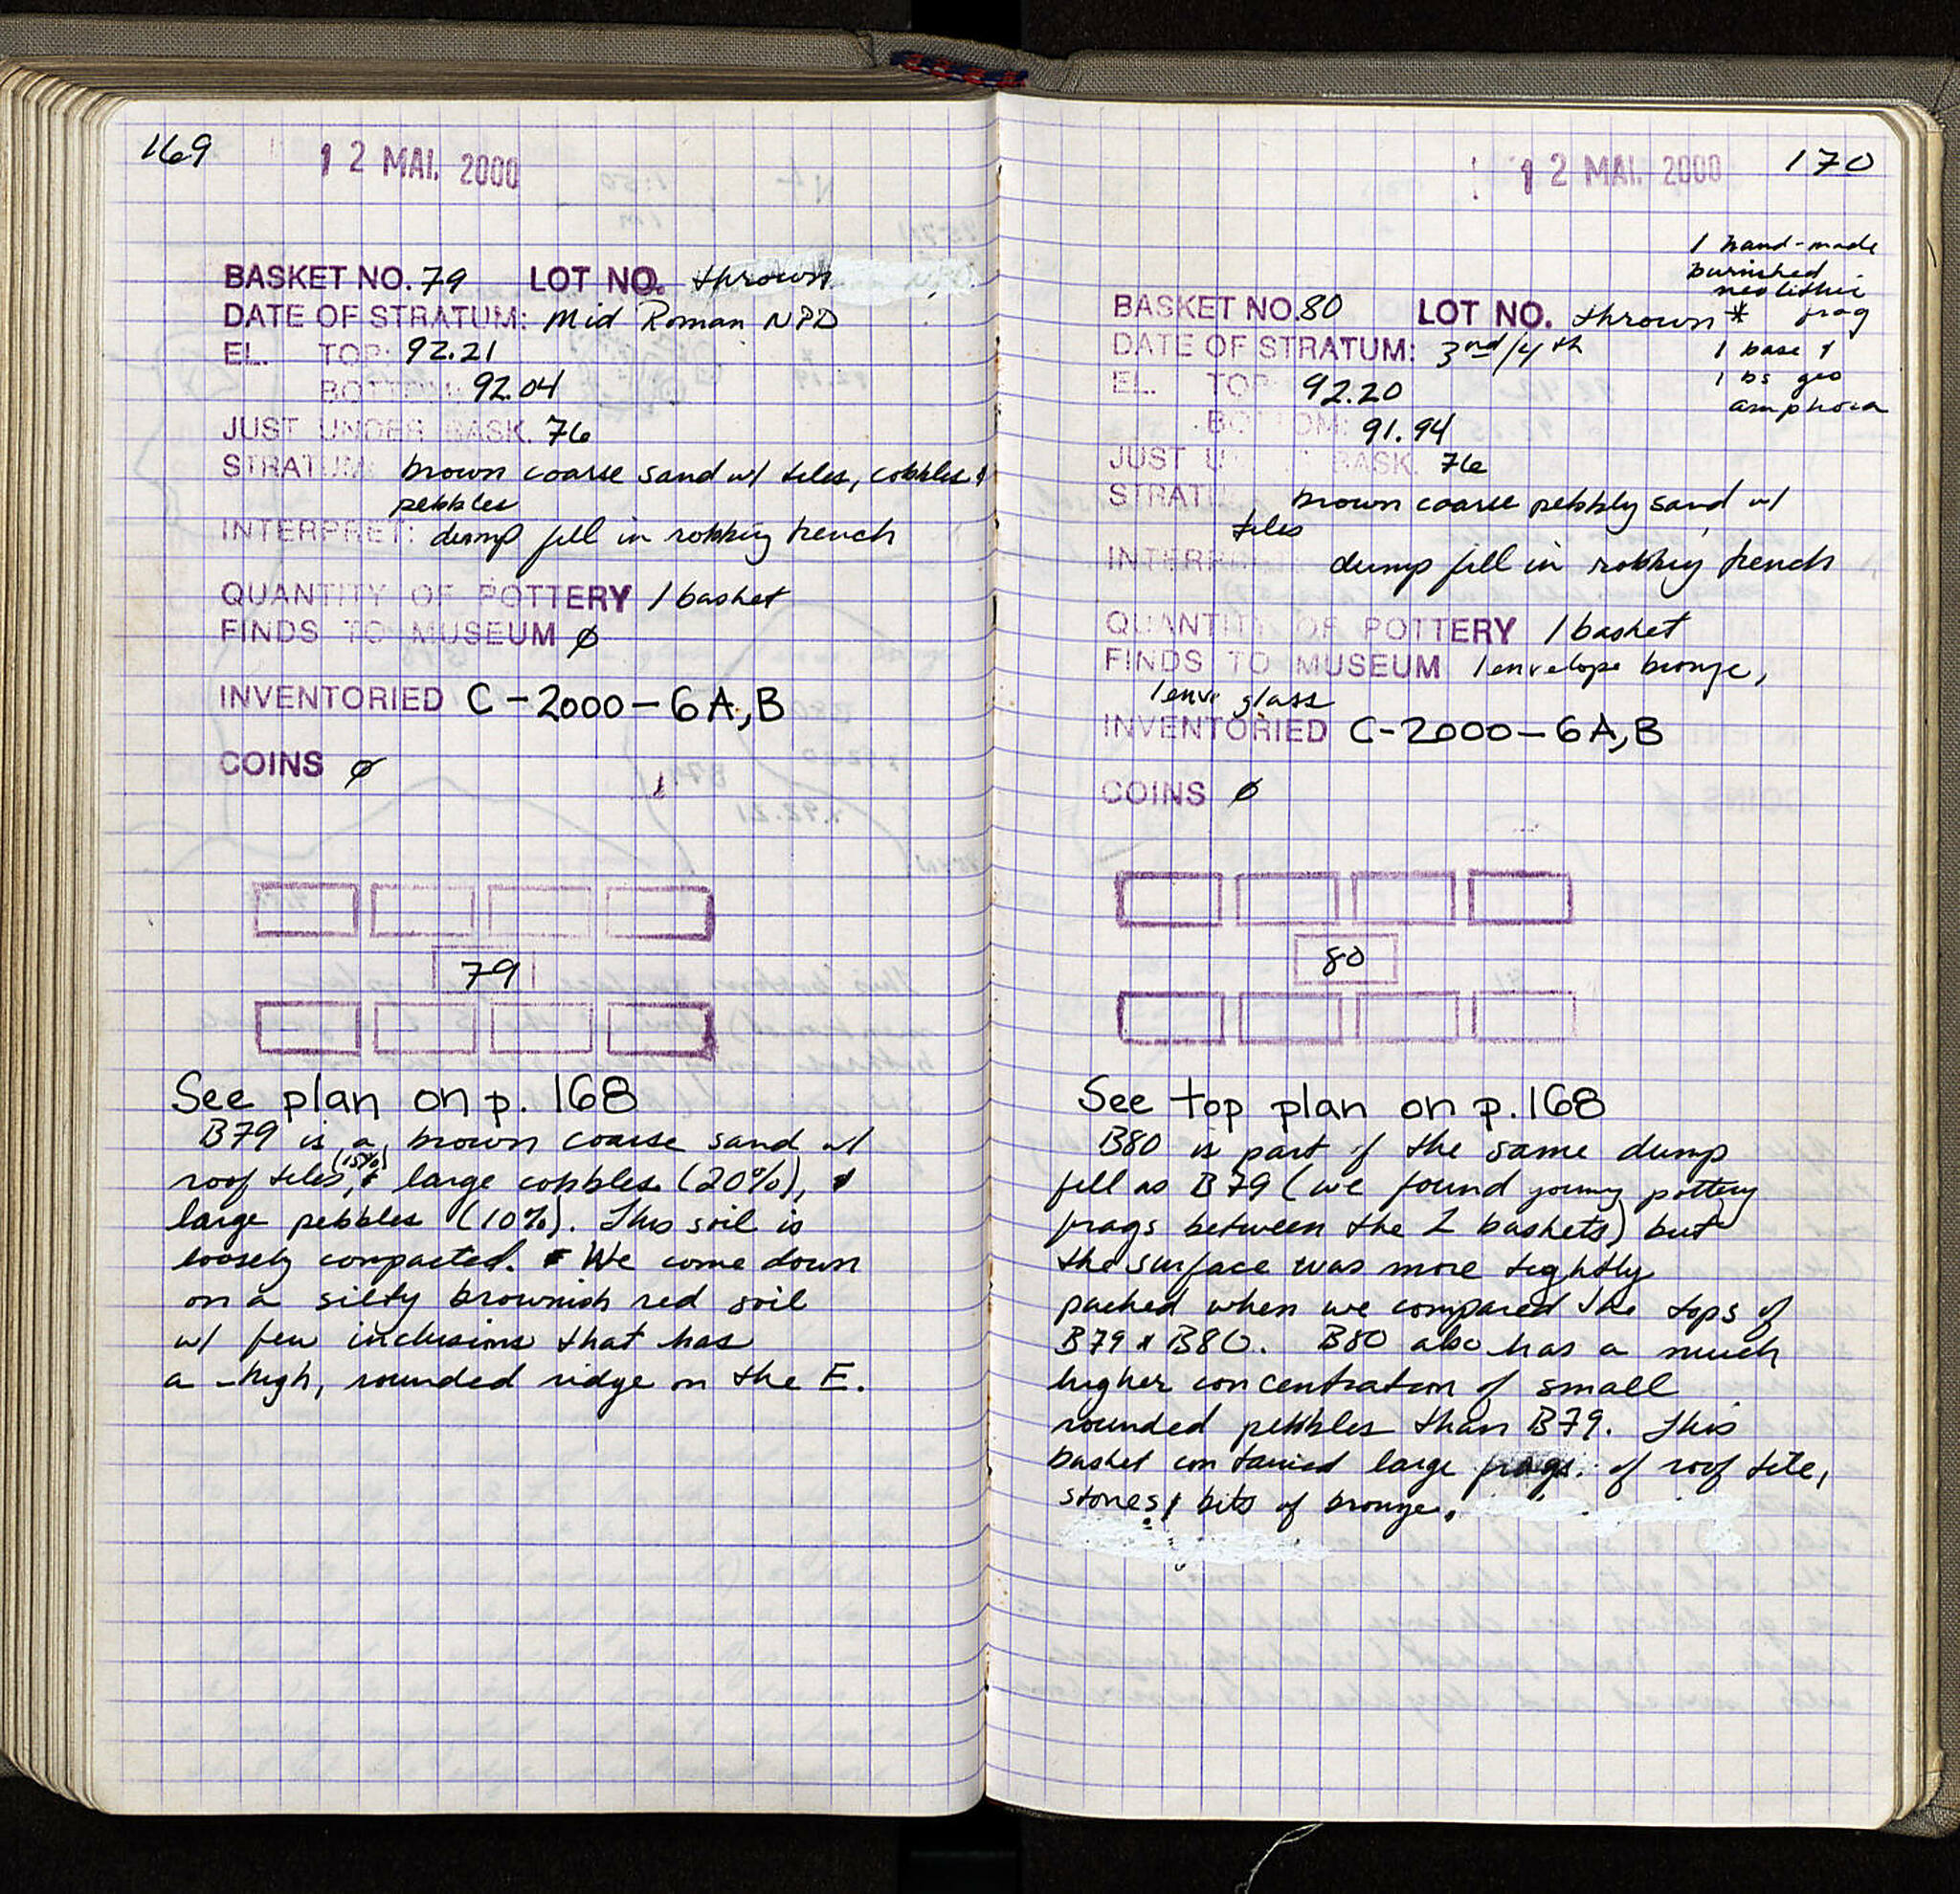 169
12 MAI. 2000
BASKET NO. 79 LOT NO. thrown
DATE OF STRATUM: Mid Roman NPD
EL. TOP: 92.21
BOTTOM: 92.04
JUST UNDER BASK. 76
STRATUM: brown coarse sand w/ tiles, cobbles &
pebbles
INTERPRET: dump fill in robbing trench
QUANTITY OF POTTERY 1 basket
FINDS TO MUSEUM ø
INVENTORIED C-2000-6A,B
COINS ø
79
See plan on p. 168
B79 is a brown coarse sand w/
roof tiles (15%), & large cobbles (20%), &
large pebbles (10%). This soil is
loosely compacted. We come down
on a silty brownish red soil
w/ few inclusions that has
a high, rounded ridge on the E.
12 MAI. 2000
170
1 hand-made
burnished
neolithic
frag
BASKET NO. 80 LOT NO. thrown *
DATE OF STRATUM: 3nd/4th
1 base &
1 bs geo
amphora
EL. TOP 92.20
BOTTOM: 91.94
JUST U BASK. 76
STRAT brown coarse pebbly sand w/
tiles
INTERPRET dump fill in robbing trench
QUANTITY OF POTTERY 1 basket
FINDS TO MUSEUM 1 envelope bronze,
1 env glass
INVENTORIED C-2000-6A,B
COINS ø
80
See top plan on p. 168
B80 is part of the same dump
fill as B79 (we found joining pottery
frags between the 2 baskets) but
the surface was more tightly
packed when we compared the tops of
B79 & B80. B80 also has a much
higher concentration of small
rounded pebbles than B79. This
basket contained large frags. of roof tile,
stones & bits of bronze.